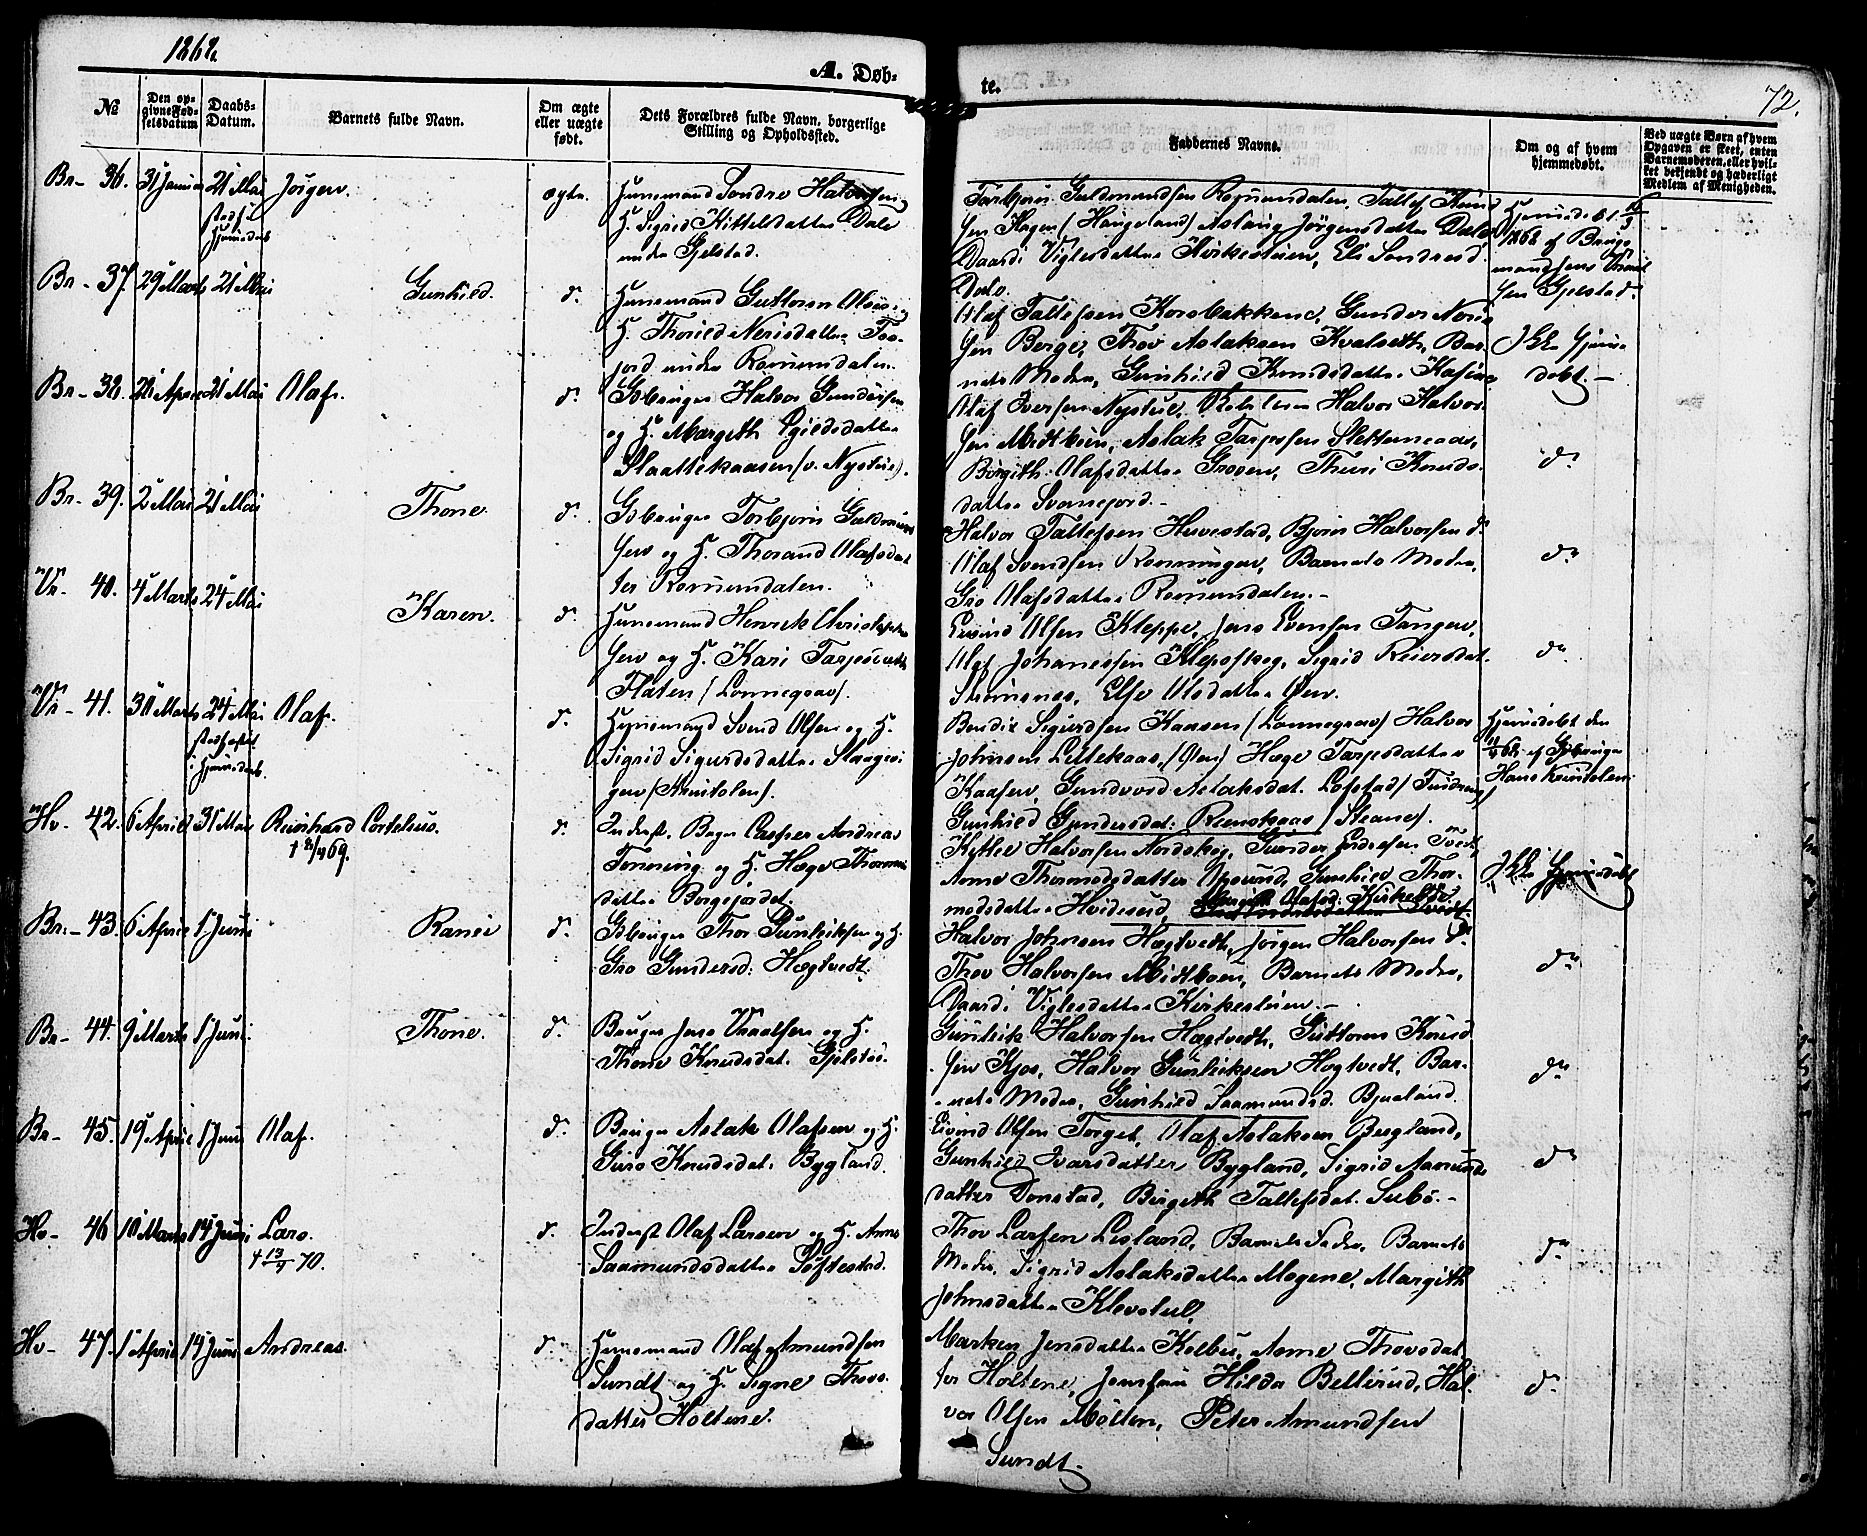 1868.
A. Døb-
te.
72.
№
Den op-
givne Fød-
selsdatum
Daabs-
Datum.
Barnets fulde Navn.
Om ægte
eller uægte
født.
Dets Forældres fulde Navn, borgerlige
Stilling og Opholdssted.
Faddernes Navne.
Om og af hvem
hjemmedøbt.
Ved uægte Børn af hvem
Opgaven er skeet, enten
Barnemoderen, eller hvil-
ket bekjendt og hæderligt
Medlem af Menigheden.
Br- 36. 21 Mai Jörgen. ægte. Huusmand Sondre Halvorsen
H. Sigrid Kittelsdatter Dale
under Gjelstad.
Torbjörn Guldmundsen Romundalen, Tallef Knud
sen Hagen (Haugeland) Aslaug Jörgensdatter Dale
Daardi Viglesdatter Kirkestuen, Eli Sondresd.
Dale.
Br- 37. 29 Marts 21 Mai Gunhild. d. Huusmand Guttorm Olsen
H. Thorild Nerisdatter
jord under Romundalen.
Olaf Tallefsen Korsbakkene, Gunder Neri
sen Berge, Thov Aslaksen Kvalseth, Bar-
nets Moder, Gunhild Knudsdatter
Ikke hjemme
döbt.-
Br- 38. 21 Mai Olaf. d. Gbruger Halvor Gundersen
og H. Margith Egildsdatter
Slaattekaasen (v. Nystue).
Olaf Iversen Nystue, Halvor Halvor-
sen Midtböen, Aslak Tarjesen Slettemeaas,
Börgith Olafsdatter Groven, Thuri Knuds-
datter Svonejord.-
d.
Br- 39. 2 Mai 21 Mai Thone. d. Gbruger Torbjörn Guldmund
sen og H. Thorand Olafsdat
ter Romundalen.
Halvor Tallefsen Huvestad, Bjorn Halvorsen d.
Olaf Svendsen Rönningen, Barnets Moder,
Gro Olafsdatter Romundalen.-
d.
Vr- 40. 4 Marts 24 Mai Karen. d. Huusmand Henrik Christoph
sen og H. Kari Tarjesdatt
Flaten (Lonnegrav).
Eivind Olsen Kleppe, Jens Evensen Tangen,
Olaf Johannessen Klepskog, Sigrid Reiersdat.
Strömsnes, Else Olsdatter Öen.
d.
Vr- 41. 30 Marts 24 Mai Olaf. d. Huusmand Svend Olsen og H.
Sigrid Sigurdsdatter
(Knutolen).
Bendix Sigurdsen Kaasen (Lonnegrav) Halvor
Johnsen Lillekaas, (Öen) Hæge Tarjesdatter
Kaasen, Gundvord Aslaksdat. Lofstad
Gunhild Gundersdat: (Steane).
Hjemmedöbt den
68 af Gbruger
Hans Knutolen
Hv- 42. 6 April 31 Mai Reinhard Cortelius.
69.
d. Inderst. Caspar Andreas
Tonning og H. Hæge Thormo
datter Borgejordet.
Kittil Halvorsen Nordskog, Gunder Tvedt,
Anne Thormodsdatter Apsund, Gunhild Thor-
modsdatter Hvideseid,
Ikke hjemmedöbt
Br- 43. 6 April 1 Juni Ranei d. Gbruger Thor Gunleiksen og H.
Gro Gundersd: Hægtvedt.
Halvor Johnsen Hægtvedt, Jörgen Halvorsen d.
Thov Halvorsen Midtböen, Barnets Moder,
Daardi Viglesdatter Kirkestuen.-
d.
Br- 44. 9 Marts 1 Juni Thone. d. Bruger Jens Vraalsen og H.
Thone Knudsdat. Gjelstad.
Gunleik Halvorsen Hægtvedt, Guttorm Knud
sen Kjos, Halvor Gunleiksen Hægtvedt, Bar-
nets Moder, Gunhild Saamundsd. Bjaaland.
d.
Br- 45. 19 April 1 Juni Olaf. d. Bruger Aslak Olafsen og H.
Guro Knudsdat. Bygland.
Eivind Olsen Torget, Olaf Aslaksen Bergland,
Gunhild Ivarsdatter Bygland, Sigrid Aamunds
datter Donstad, Birgith Tallefsdat. Subö.-
d.
Hv- 46 10 Marts 14 Juni Lars.
† 13/9 70.
d. Inderst Olaf Larsen og H. Anne
Saamundsdatter Söftestad.
Thov Larsen Lisland, Barnets Fader, Barnets
Moder, Sigrid Aslaksdatter Mogene, Margith
Johnsdatter Klevstul,
d.
Hv- 47. 1 April 14 Juni Andreas. d. Huusmand Olaf Amundsen
Sundt og H. Signe Thovs-
datter Holtene.
Marken Jensdatter Kolbu, Anne Thovsdat
ter Holtene, Jomfru Hilda Bellerud, Hal-
vor Olsen Möllen, Peter Amundsen
Sundt.
d.